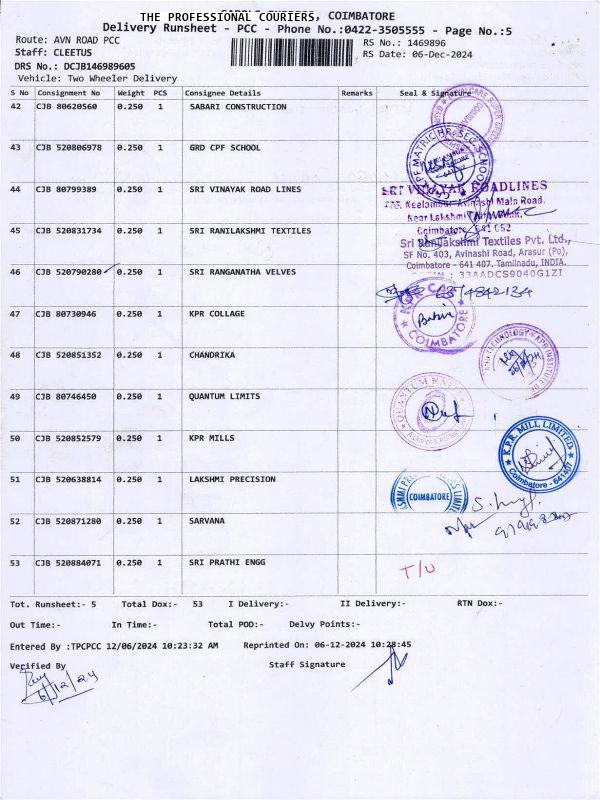 THE PROFESSIONAL COURIERS, COIMBATORE
Delivery Runsheet - PCC - Phone No.:0422-3505555 - Page No.:5
Route: AVN ROAD PCC
RS No.: 1469896
Staff: CLEETUS
RS Date: 06-Dec-2024
DRS No.: DCJB146989605
Vehicle: Two Wheeler Delivery
S No Consignment No Weight PCS Consignee Details Remarks Seal & Signature
42 CJB 80620560 0.250 1 SABARI CONSTRUCTION
43 CJB 520806978 0.250 1 GRD CPF SCHOOL
44 CJB 80799389 0.250 1 SRI VINAYAK ROAD LINES
SRI VINAYAK ROADLINES
Avinashi Main Road,
Near Lakshmi
Coimbatore - 641 062
45 CJB 520831734 0.250 1 SRI RANILAKSHMI TEXTILES
Sri Ranilakshmi Textiles Pvt. Ltd.,
SF No. 403, Avinashi Road, Arasur (Po),
Coimbatore - 641 407. Tamilnadu, INDIA.
33AADCS9040G1ZI
46 CJB 520790280 0.250 1 SRI RANGANATHA VELVES
47 CJB 80730946 0.250 1 KPR COLLAGE
COIMBATORE
48 CJB 520851352 0.250 1 CHANDRIKA
49 CJB 80746450 0.250 1 QUANTUM LIMITS
50 CJB 520852579 0.250 1 KPR MILLS
K.P.R. MILL LIMITED
Coimbatore - 641407
51 CJB 520638814 0.250 1 LAKSHMI PRECISION
COIMBATORE
52 CJB 520871280 0.250 1 SARVANA
53 CJB 520884071 0.250 1 SRI PRATHI ENGG
T/U
Tot. Runsheet:- 5 Total Dox:- 53 I Delivery:- II Delivery:- RTN Dox:-
Out Time:- In Time:- Total POD:- Delvy Points:-
Entered By :TPCPCC 12/06/2024 10:23:32 AM Reprinted On: 06-12-2024 10:28:45
Verified By Staff Signature
6/12/24